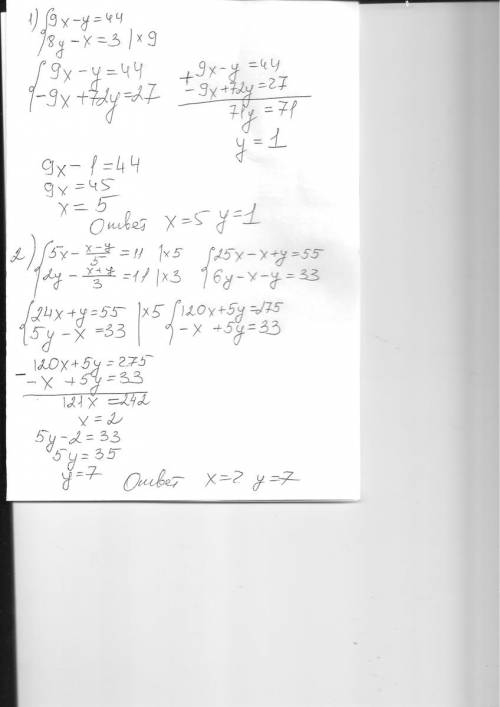 1) { 9x-y=44
8y-x=3 | x9
{ 9x-y=44
-9x+72y=27
+ 9x-y=44
-9x+72y=27
71y=71
y=1
9x-1=44
9x=45
x=5
Ответ x=5 y=1
2) { 5x - (x-y)/5 = 11 | x5
2y - (x+y)/3 = 11 | x3
{ 25x-x+y=55
6y-x-y=33
{ 24x+y=55 | x5
5y-x=33
{ 120x+5y=275
-x+5y=33
- 120x+5y=275
-x+5y=33
121x=242
x=2
5y-2=33
5y=35
y=7
Ответ x=2 y=7